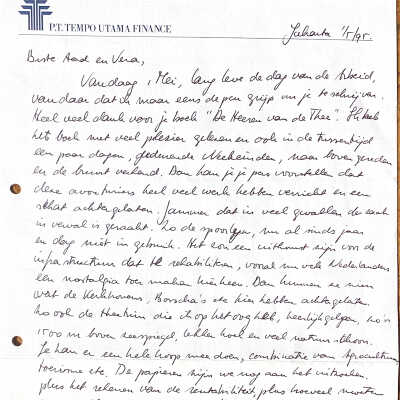 P.T. TEMPO UTAMA FINANCE
Jakarta 1/5/95.
Beste Aad en Vera,
Vandaag, 1 Mei, lang leve de dag van de Arbeid,
vandaar dat ik maar eens de pen grijp om je te schrijven.
Heel veel dank voor je boek "De Heeren van de Thee". Ik heb
het boek met veel plezier gelezen en ook in de tussentijd
een paar dagen, gedurende Weekeinden, naar boven gereden
en de buurt verkend. Dan kan je je pas voorstellen dat
deze avonturiers heel veel werk hebben verricht en een
schat achtergelaten. Jammer dat in veel gevallen de zaak
in verval is geraakt. Zo de spoorlijn, nu al sinds jaar
en dag niet in gebruik. Het zou een uitkomst zijn om de
infrastructuur dat te rehabiliteren, vooral nu vele Nederlanders
een nostalgia toer maken hierheen. Dan kunnen ze zien
wat de Kerkhovens, Bosscha's etc hier hebben achtergelaten.
Zo ook de theetuin die ik op het oog heb, heerlijk gelegen, zo'n
1500 m boven zeespiegel, lekker koel en veel natuurschoon.
Je kan er een hele hoop mee doen, combinatie van Agrocultuur
toerisme etc. De papieren zijn we nog aan het uitzoeken
plus het rekenen van de rentabiliteit, plus hoeveel moeten